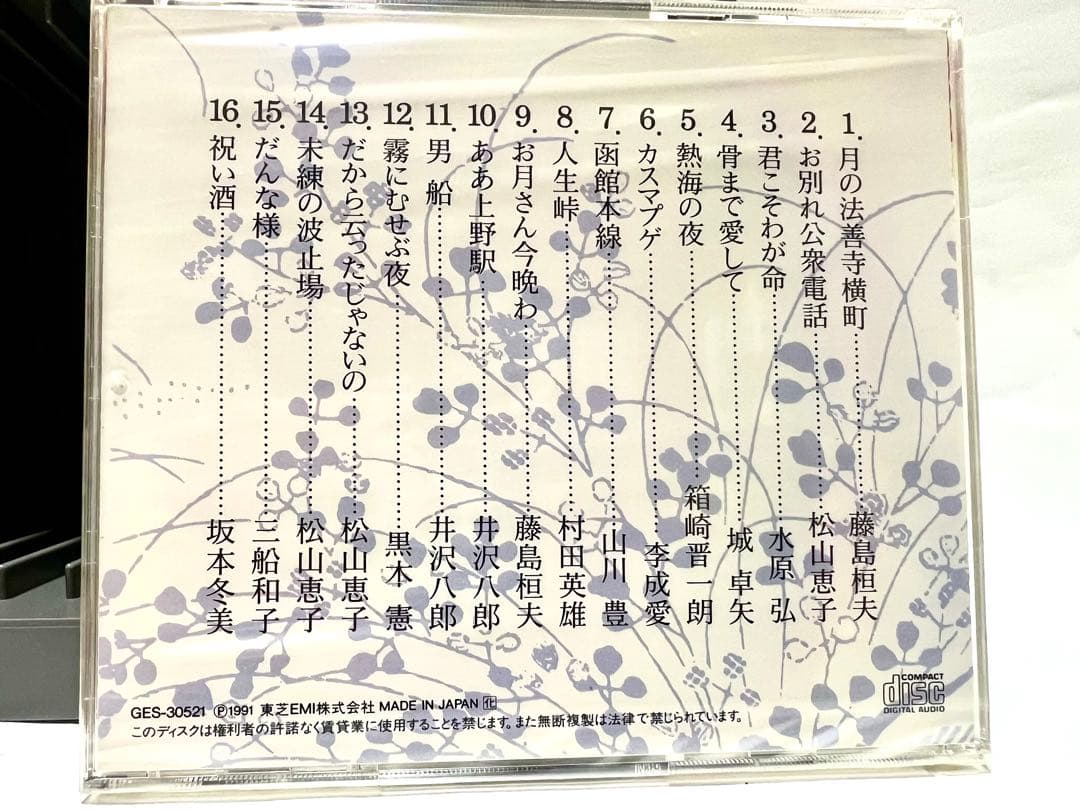 1. 月の法善寺横町…………藤島桓夫
2. お別れ公衆電話…………松山恵子
3. 君こそわが命…………水原 弘
4. 骨まで愛して…………城 卓矢
5. 熱海の夜…………箱崎晋一朗
6. カスマプゲ…………李成愛
7. 函館本線…………山川 豊
8. 人生峠…………村田英雄
9. お月さん今晩わ…………藤島桓夫
10. ああ上野駅…………井沢八郎
11. 男 船…………井沢八郎
12. 霧にむせぶ夜…………黒木 憲
13. だから云ったじゃないの…………松山恵子
14. 未練の波止場…………松山恵子
15. だんな様…………三船和子
16. 祝い酒…………坂本冬美
COMPACT
disc
DIGITAL AUDIO
GES-30521 Ⓟ1991 東芝EMI株式会社 MADE IN JAPAN
このディスクは権利者の許諾なく賃貸業に使用することを禁じます。また無断複製は法律で禁じられています。